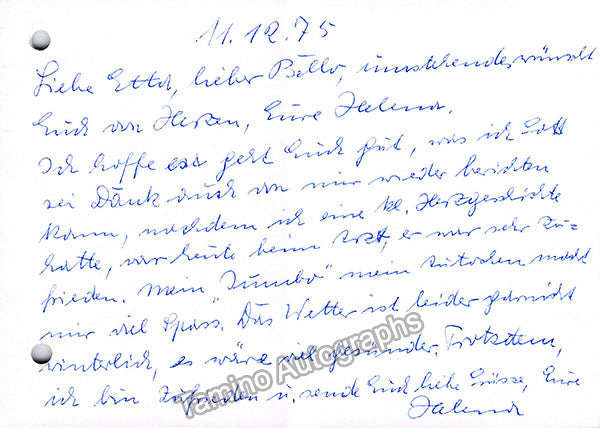 11.12.75
Liebe Etta, lieber Bello, umstehendes wünscht
Euch von Herzen, Eure Jalena.
Ich hoffe es geht Euch gut, was ich Gott
sei Dank auch von mir wieder berichten
kann, nachdem ich eine kl. Herzgeschichte
hatte, war heute beim Arzt, er war sehr zu=
frieden. Mein "Jumbo" mein Autochen macht
mir viel Spass. Das Wetter ist leider garnicht
winterlich, es wäre viel gesünder. Trotzdem,
ich bin zufrieden u. sende Euch liebe Grüsse, Eure
Jalena
Tamino Autographs